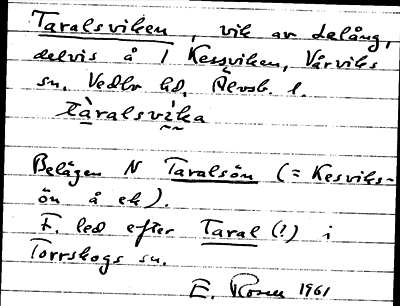 Taralsviken, vik av Lelång,
delvis å 1 Kessviken, Vårviks
sn. Vedbo hd, Älvsb. l.
tàralsvi̇ka
Belägen N Taralsön (= Kesviks-
ön å ek).
F. led efter Taral (!) i
Torrskogs sn.
E. Rosén 1961